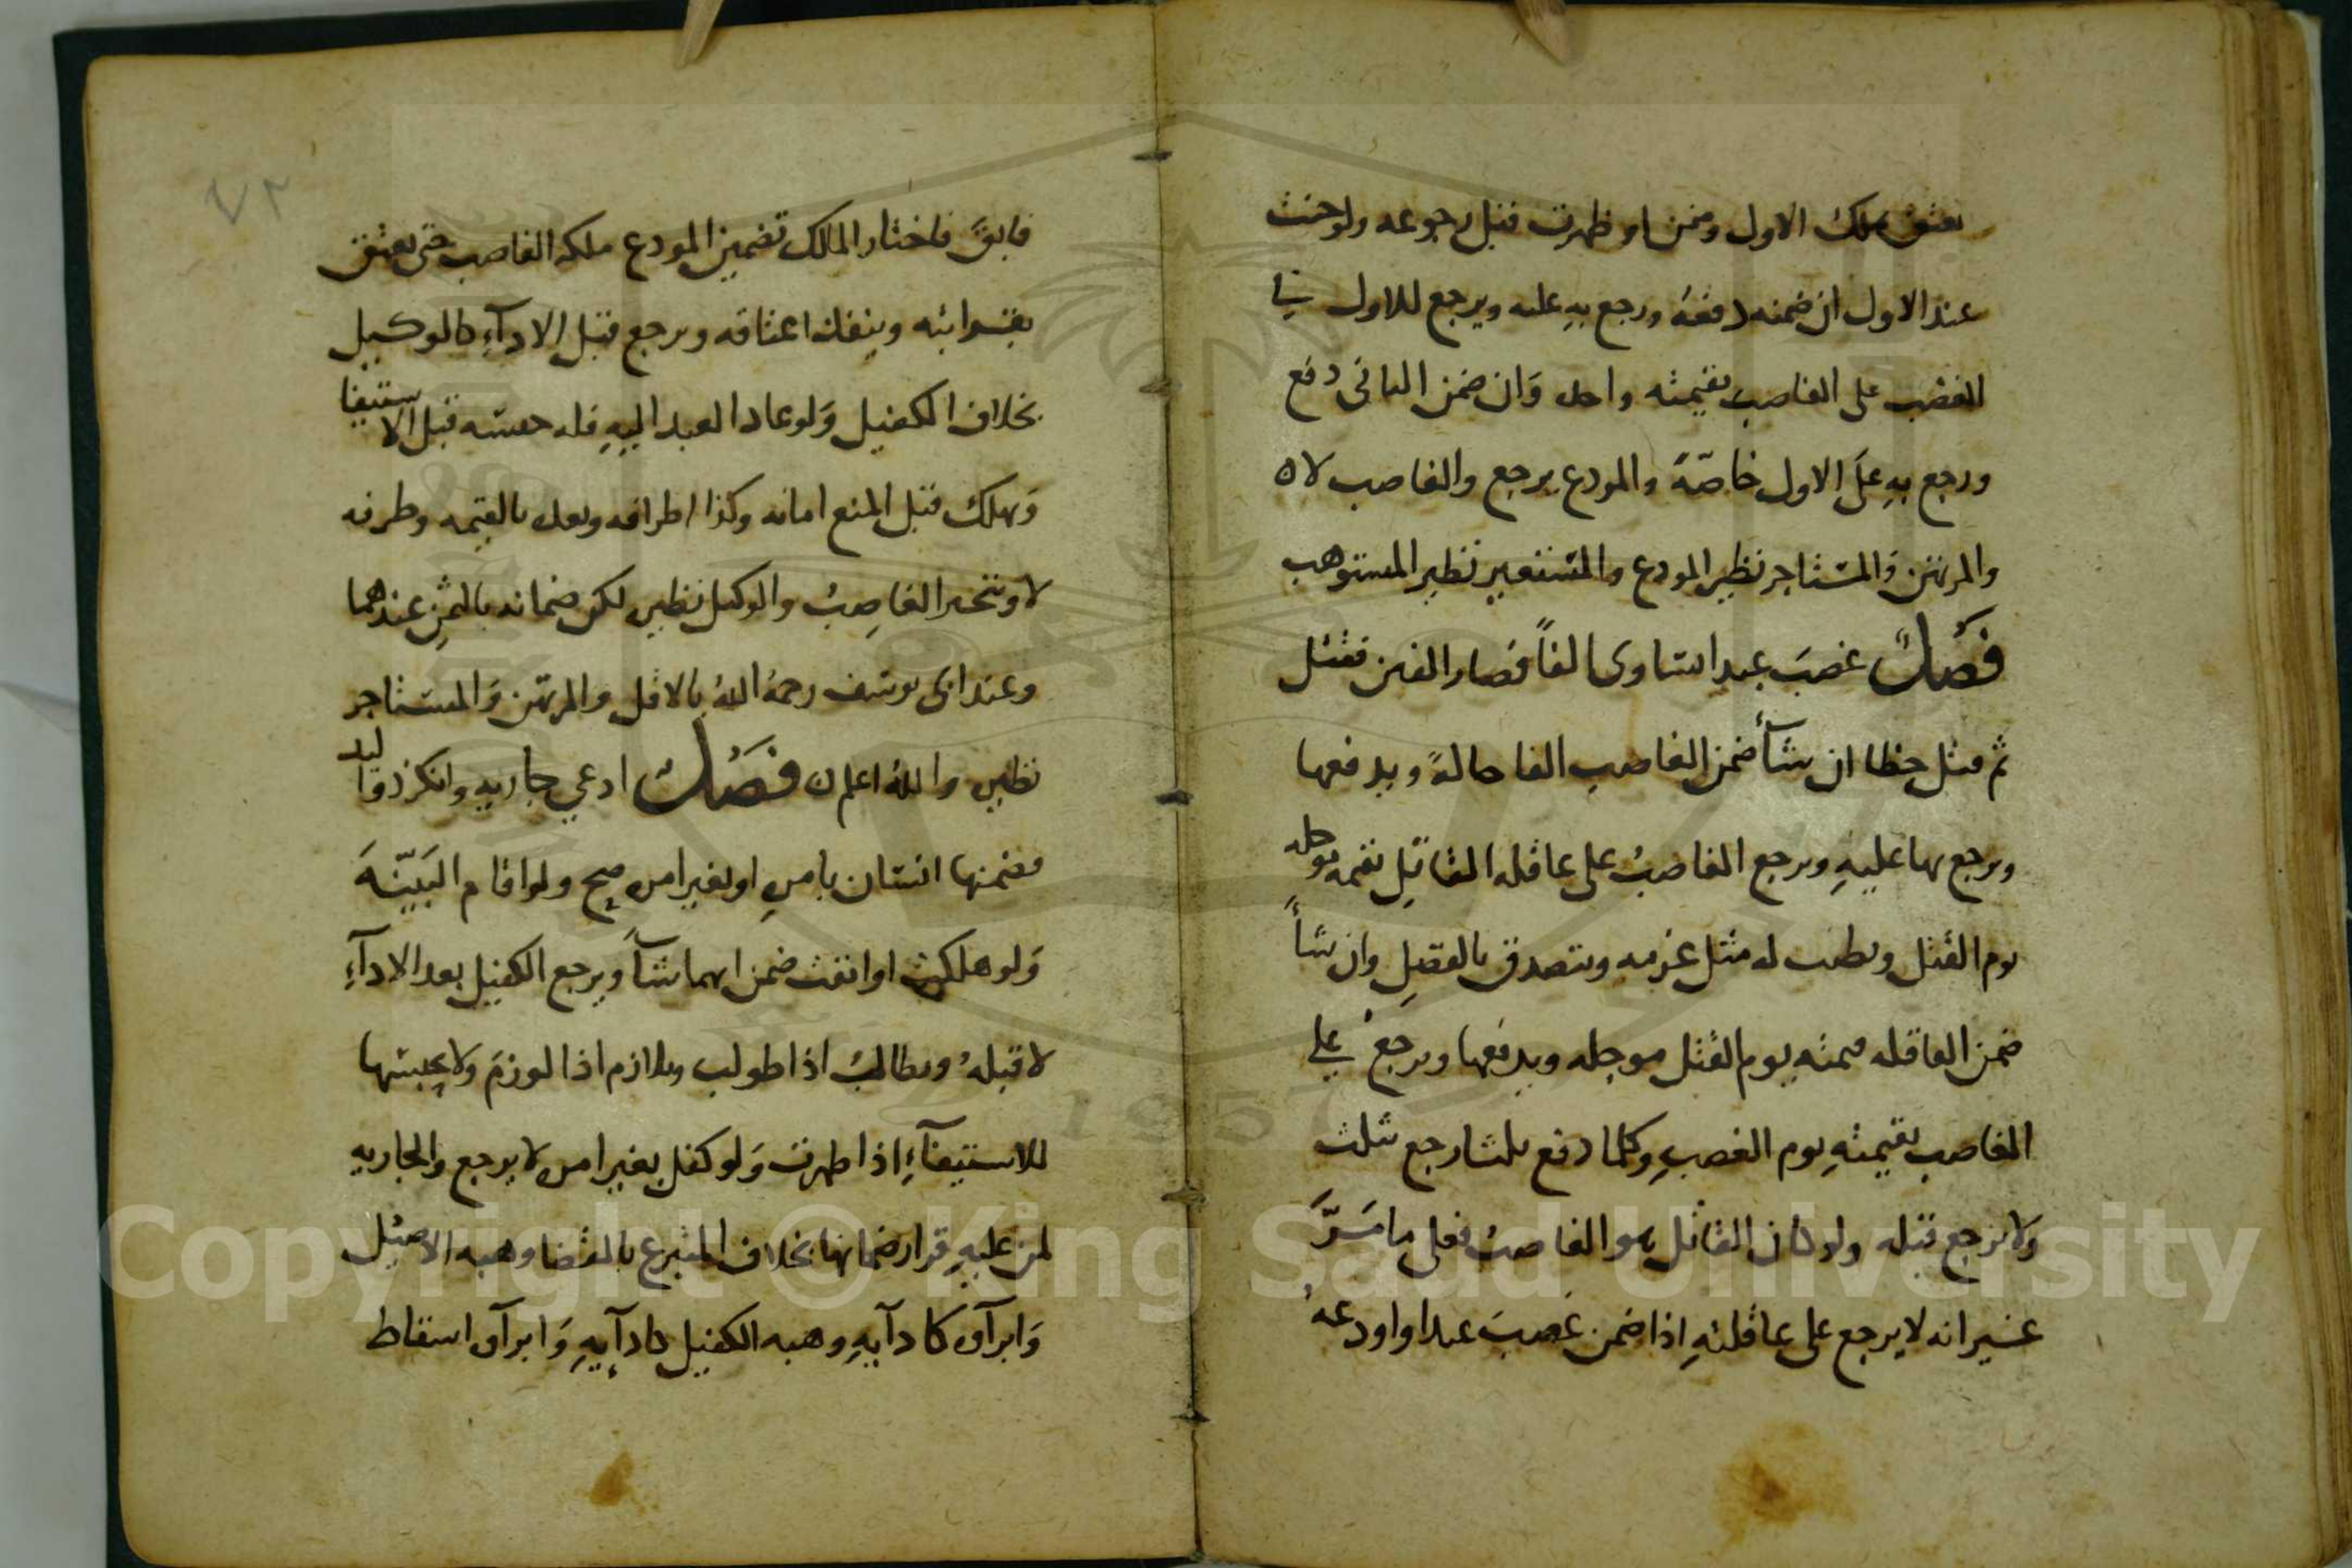 يعتق بملك الاول ومن او ظهرت قبل رجوعه ولو جنت
عند الاول ان ضمنه دفعه ورجع به عليه ويرجع للاول في
الغصب على الغاصب بقيمته واحد وان ضمن الثاني دفع
ورجع به على الاول خاصة والمودع يرجع والغاصب لا ه
والمرتهن والمستاجر نظير المودع والمستعير نظير المستوهب
فصل غصب عبدا ساوى الفا فصار الفين فقتل
ثم قتل خطا ان شا ضمن الغاصب الفا حالة ويدفعها
ويرجع بها عليه ويرجع الغاصب على عاقلة القاتل بقيمه موجله
يوم القتل ويطيب له مثل غرمه ويتصدق بالفضل وان شا
ضمن العاقله قيمته يوم القتل موجله ويدفعها ويرجع على
الغاصب بقيمته يوم الغصب وكلما دفع ثلثا رجع بثلث
ولا يرجع قبله ولو كان القاتل هو الغاصب فعلى ما مر
غير انه لا يرجع على عاقلته اذا ضمن غصب عبدا واودعه
٧٢
فابق فاختار المالك تضمين المودع ملكه الغاصب حتى يعتق
بقرابته وينفذ اعتاقه ويرجع قبل الادآء كالوكيل
بخلاف الكفيل ولو عاد العبد اليه فله حبسه قبل الاستيفا
ويهلك قبل المنع امانه وكذا اطرافه وبعده بالقيمه وطرفه
لا ويتخير الغاصب والوكيل نظيره لكن ضمانه بالثمن عندهما
وعند ابى يوسف رحمه الله بالاقل والمرتهن والمستاجر
نظيره والله اعلم فصل ادعي جاريه وانكر ذو اليد
فضمنها انسان بامره او بغير امره صح ولو اقام البينة
ولو هلكت او ابقت ضمن ايهما شآ ويرجع الكفيل بعد الادآء
لا قبله ويطالب اذا طولب ويلازم اذا لوزم ولا يحبسها
للاستيفآء اذا ظهرت ولو كفل بغير امره لا يرجع والجاريه
لمن عليه قرار ضمانها بخلاف المتبرع بالقضا وهبه الاصيل
وابرآوه كادآيه وهبه الكفيل كادآيه وابرآوه اسقاط